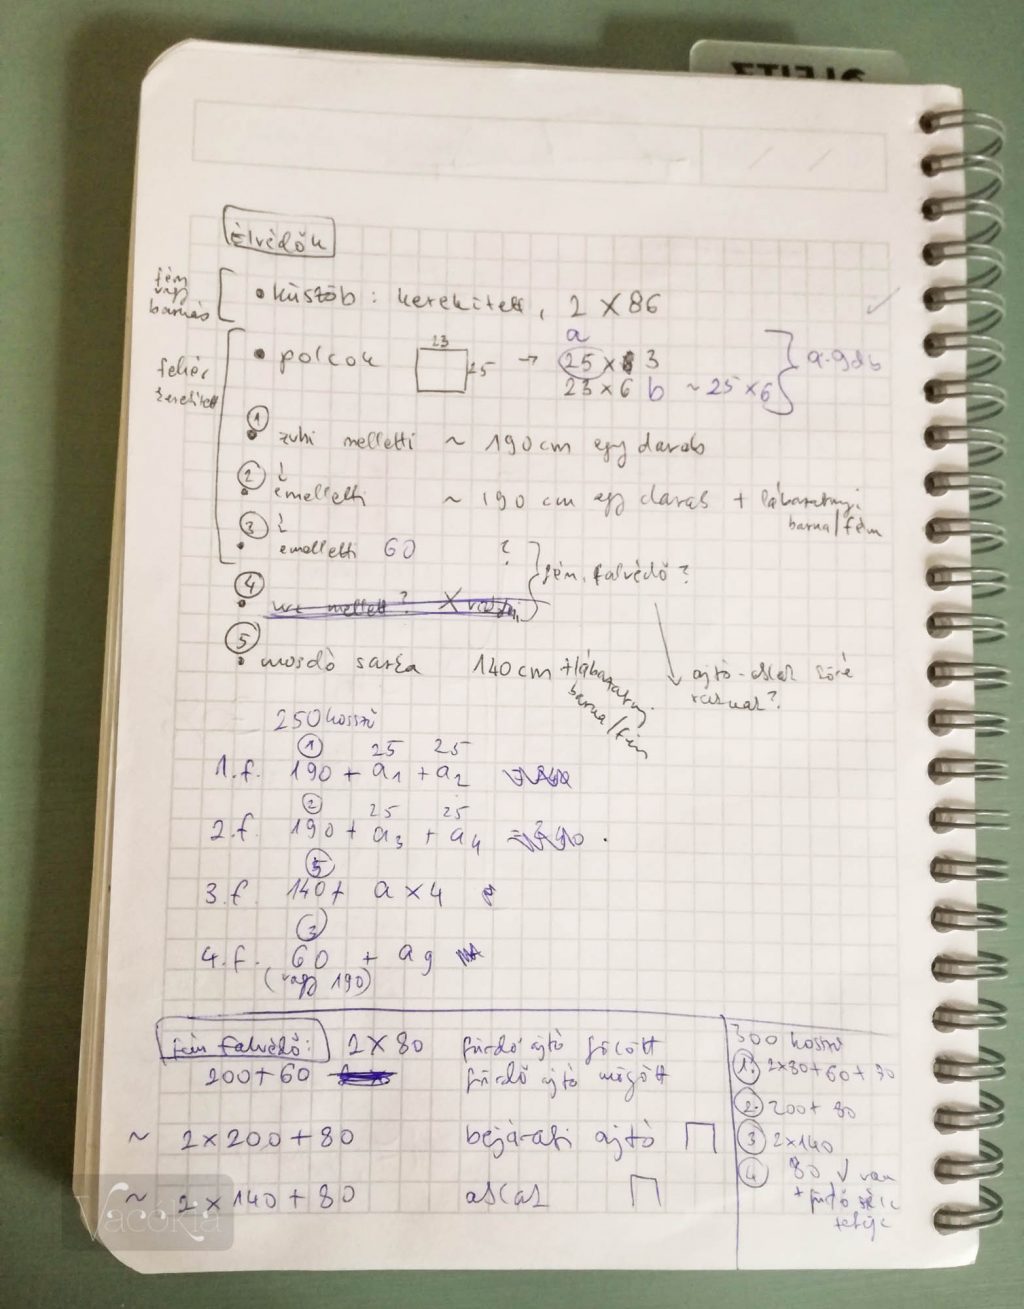 élvédők
fém
vagy
barnás
• küszöb: kerekített, 2 X 86
fehér
• polcok 23 25 → a 25 x 3
23 x 6 b ~ 25 x 6 a. 9 db
① zuhi melletti ~ 190 cm egy darab
② emelletti ~ 190 cm egy darab + lábazatnyi
barna/fém
③ emelletti 60 ?
fém. falvédő?
④ wc mellett? X
⑤ mosdó sarka 140 cm + lábazatny.
barna/fém
ajtó-ablak köré
250 hosszú
① 25 25
1.f. 190 + a1 + a2
② 25 25
2.f. 190 + a3 + a4
⑤
3.f. 140 + a x 4
③
4.f. 60 + a9
(vagy 190)
fém falvédő: 2 X 80 fürdő ajtó között
200 + 60 fürdő ajtó mögött
~ 2 x 200 + 80 bejárati ajtó
~ 2 x 140 + 80 ablak
300 hosszú
① 2x80+60+30
② 200+ 80
③ 2x140
④ 80 √ van
Vacokla